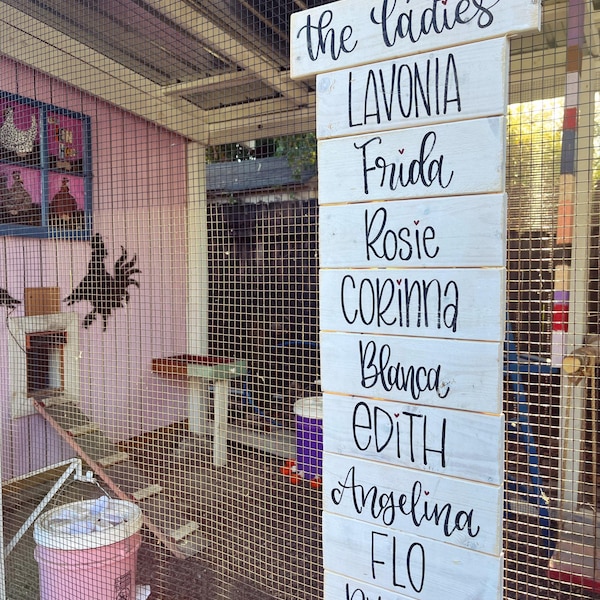 the ladies
LAVONIA
Frida
Rosie
CORINNA
Blanca
EDITH
Angelina
FLO